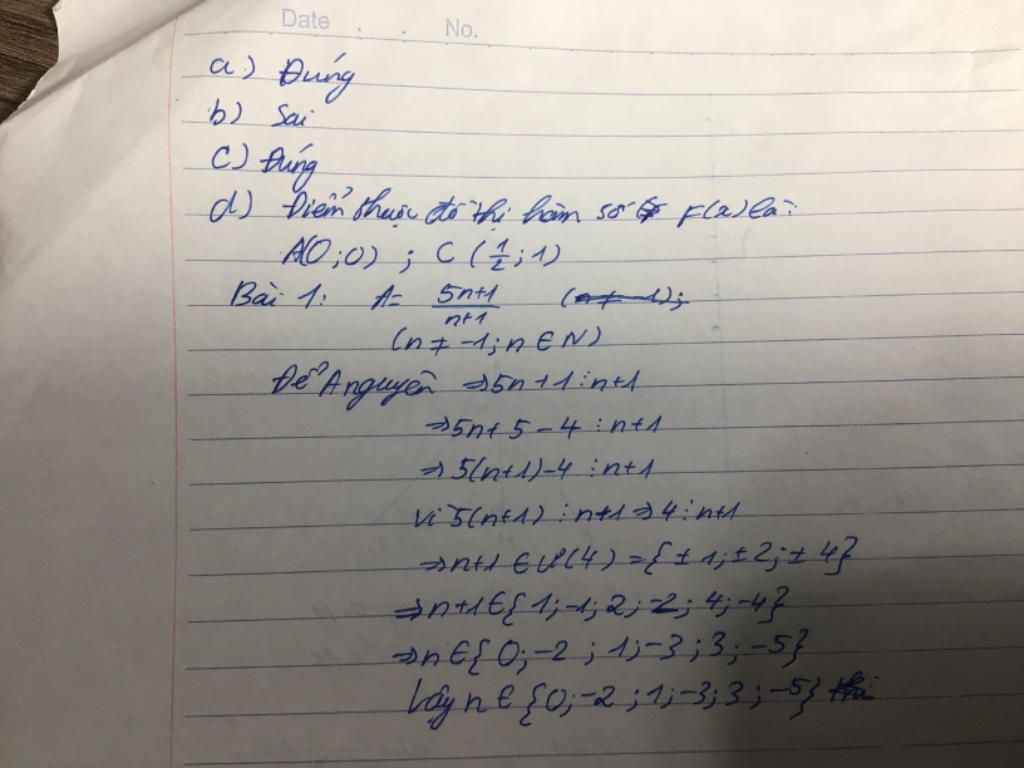 Date . . No.
a) Đúng
b) Sai
c) Đúng
d) Điểm thuộc đồ thị hàm số F(x) là:
A(0;0) ; C (1/2; 1)
Bài 1: A = 5n+1/n+1 (n ≠ -1);
(n ≠ -1; n ∈ N)
Để A nguyên ⇒ 5n+1 ⋮ n+1
⇒ 5n+5-4 ⋮ n+1
⇒ 5(n+1)-4 ⋮ n+1
Vì 5(n+1) ⋮ n+1 ⇒ 4 ⋮ n+1
⇒ n+1 ∈ Ư(4) = {±1; ±2; ±4}
⇒ n+1 ∈ {1; -1; 2; -2; 4; -4}
⇒ n ∈ {0; -2 ; 1; -3 ; 3 ; -5}
Vậy n ∈ {0; -2 ; 1; -3; 3 ; -5} thì